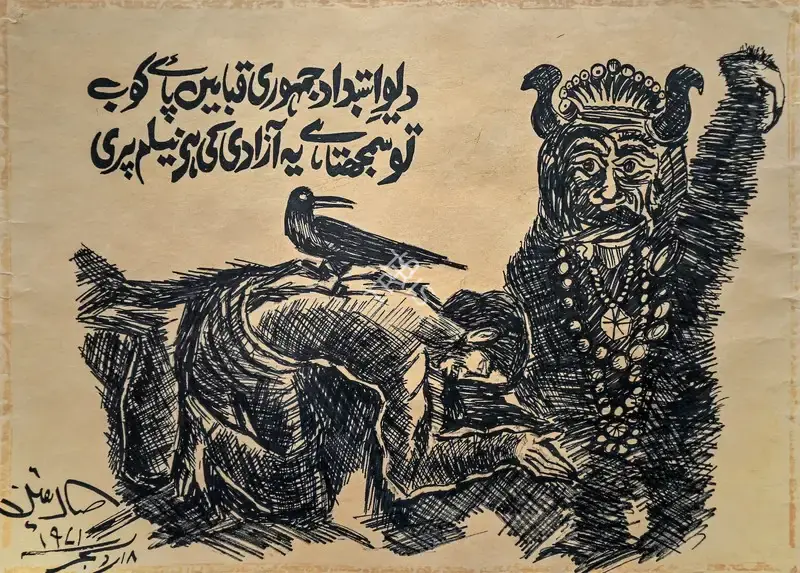 دیوِ استبداد جمہوری قبا میں پائے کوب
تو سمجھتا ہے یہ آزادی کی ہے نیلم پری
صادقین
۱۹۷۱
۱۸ دسمبر